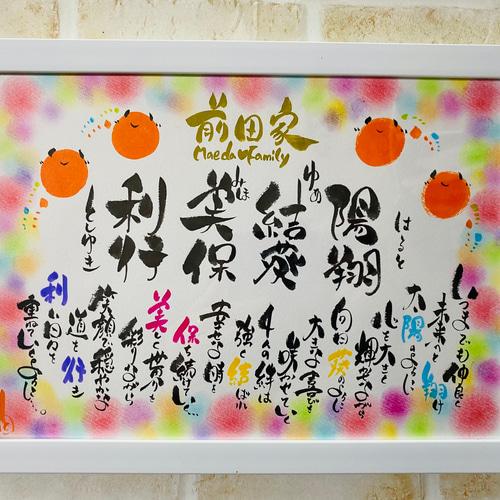 前田家
Maeda Family
陽翔
はると
結葵
ゆめ
美保
みほ
利行
としゆき
いつまでも仲良く
未来へと翔け
太陽のように
心を大きく
輝かせながら
向日葵のように
大きな喜びを
咲かせていく
4人の絆は
強く結ばれ
幸せな時を
保ち続けていく…
美しく世界を
彩りながら
笑顔で穏やかな
道を行き
利い日々を
重ねていくように…。